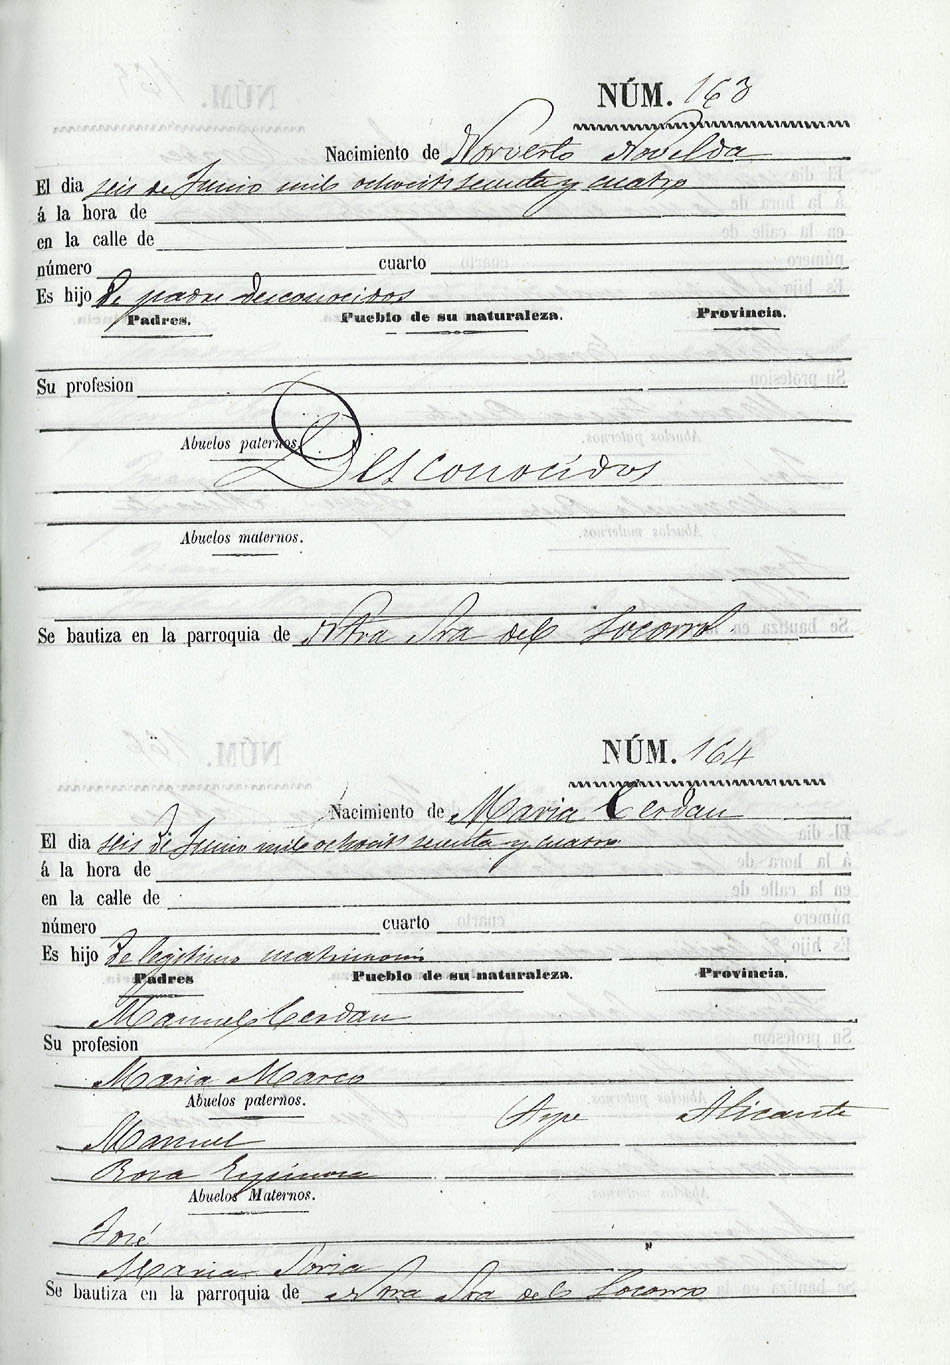 NÚM. 163
Nacimiento de Norverto Novelda
El dia seis de Junio mil ochocits setenta y cuatro
á la hora de
en la calle de
número cuarto
Es hijo de padre desconocidos
Padres. Pueblo de su naturaleza. Provincia.
Su profesion
Abuelos paternos.
Desconocidos
Abuelos maternos.
Se bautiza en la parroquia de Ntra Sra del Socorro
NÚM. 164
Nacimiento de Maria Cerdan
El dia seis de Junio mil ochocits setenta y cuatro
á la hora de
en la calle de
número cuarto
Es hijo de legitimo matrimonio
Padres Pueblo de su naturaleza. Provincia.
Manuel Cerdan
Su profesion
Maria Marco
Abuelos paternos.
Manuel Aspe Alicante
Rosa Espinosa
Abuelos Maternos.
José
Maria Soria
Se bautiza en la parroquia de Ntra Sra del Socorro